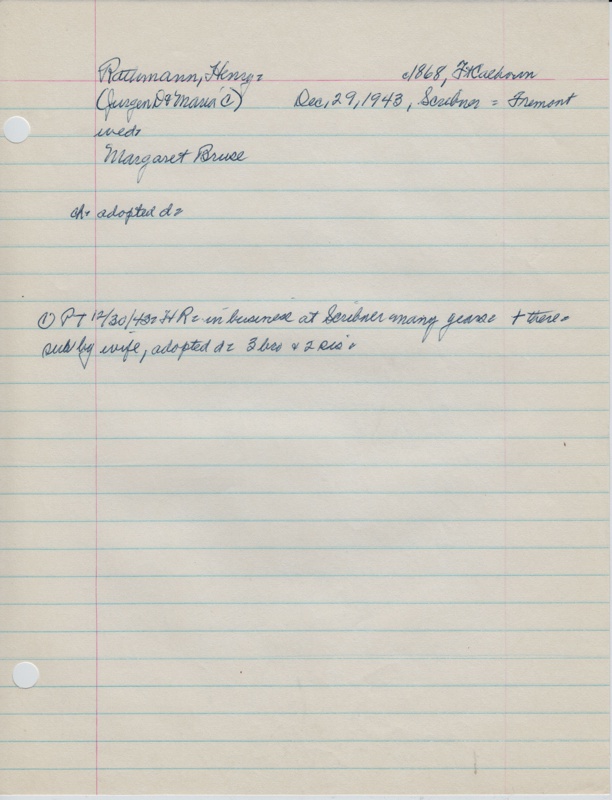 Rathmann, Henry=
c1868, Ft Calhoun
(Jurgen D & Maria ①)
Dec, 29, 1943, Scribner = Fremont
wed=
Margaret Bruse
ch= adopted d=
① PT 12/30/43= HR= in business at Scribner many years= + there=
sub by wife, adopted d= 3 bro & 2 sis=